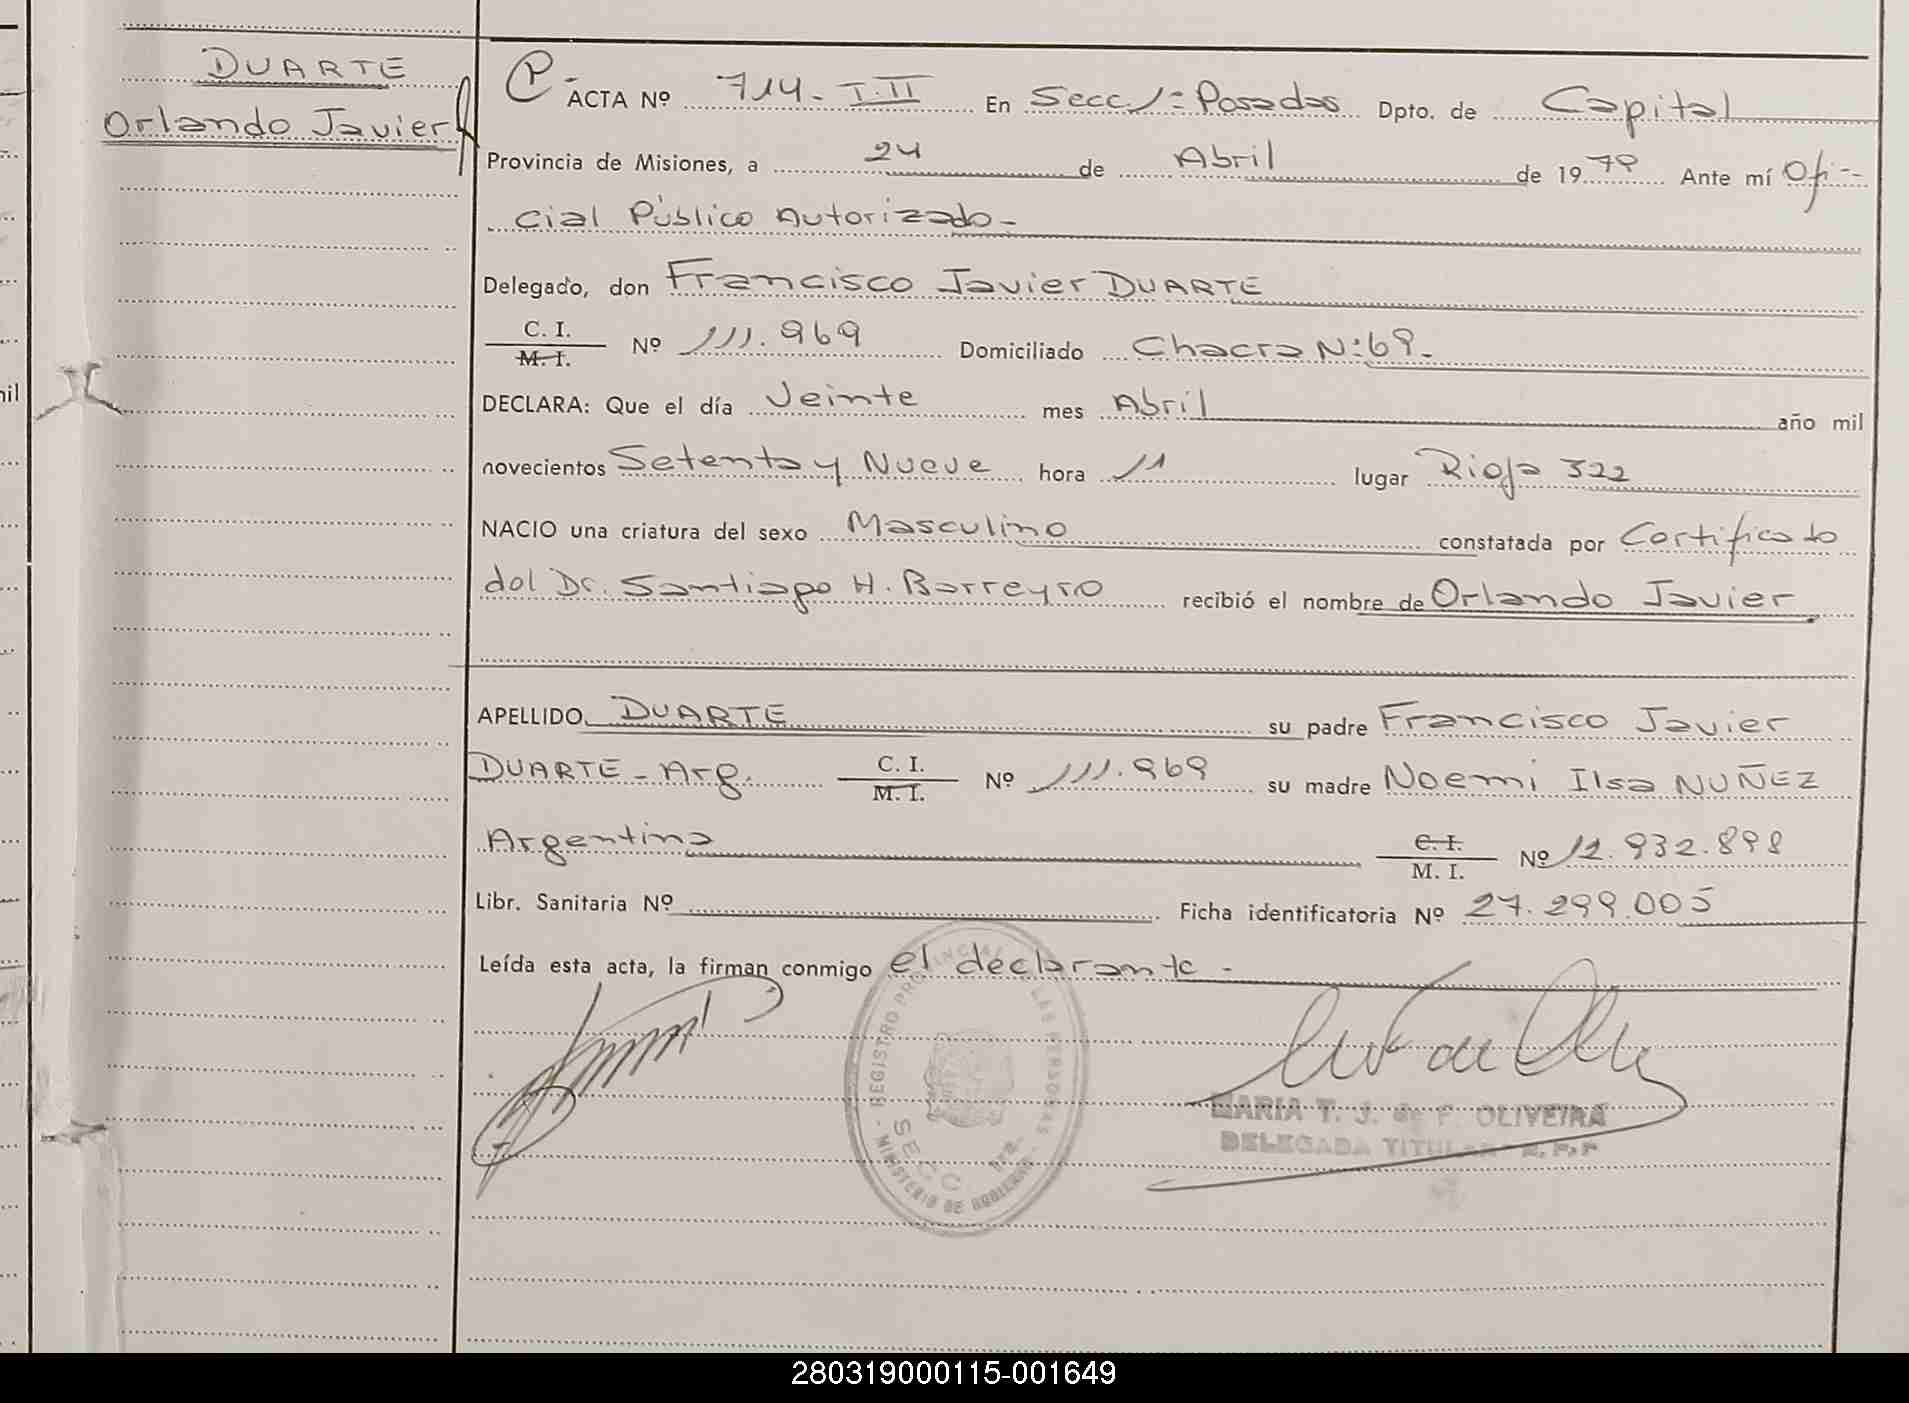 DUARTE
Orlando Javier
ACTA Nº 714- T.II En Secc 1ª Posadas Dpto. de Capital
Provincia de Misiones, a 24 de Abril de 1979 Ante mí Ofi--
cial Público Autorizado-
Delegado, don Francisco Javier DUARTE
C. I.
M. I.
Nº 111.969 Domiciliado Chacra Nº 69.-
DECLARA: Que el día Veinte mes Abril año mil
novecientos Setenta y Nueve hora 11 lugar Rioja 322
NACIO una criatura del sexo Masculino constatada por Certificado
del Dr. Santiago H. Barreyro recibió el nombre de Orlando Javier
APELLIDO DUARTE su padre Francisco Javier
DUARTE - Arg. C. I.
M. I.
Nº 111.969 su madre Noemi Ilsa NUÑEZ
Argentina C. I.
M. I.
Nº 12.932.898
Libr. Sanitaria Nº Ficha identificatoria Nº 27.299.005
Leída esta acta, la firman conmigo el declarante -
REGISTRO PROVINCIAL DE LAS PERSONAS
SECC 1ra.
MINISTERIO DE GOBIERNO
MARIA T. J. de F. OLIVEIRA
DELEGADA TITULAR
280319000115-001649